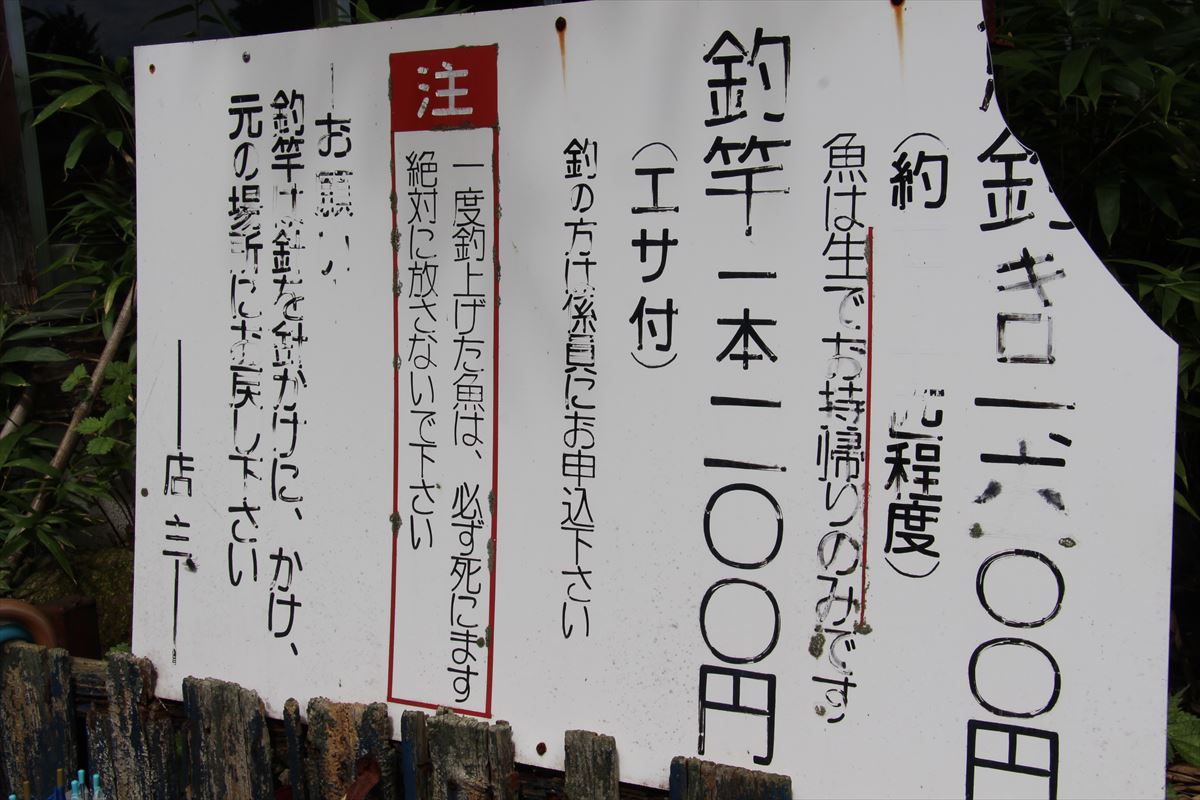 釣キロ一六〇〇円
(約 程度)
魚は生でお持帰りのみです
釣竿一本二〇〇円
(エサ付)
釣の方は係員にお申込下さい
注
一度釣上げた魚は、必ず死にます
絶対に放さないで下さい
お願い
釣竿は針を針かけに、かけ、
元の場所にお戻し下さい
店主